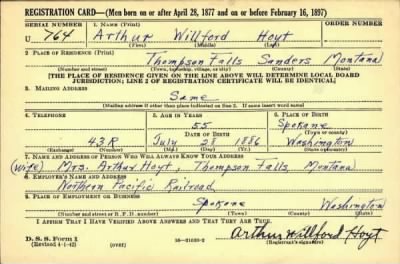 REGISTRATION CARD—(Men born on or after April 28, 1877 and on or before February 16, 1897)
SERIAL NUMBER 1. NAME (Print)
U 764 Arthur Willford Hoyt
(First) (Middle) (Last)
2. PLACE OF RESIDENCE (Print)
Thompson Falls Sanders Montana
(Number and street) (Town, township, village, or city) (County) (State)
[THE PLACE OF RESIDENCE GIVEN ON THE LINE ABOVE WILL DETERMINE LOCAL BOARD
JURISDICTION; LINE 2 OF REGISTRATION CERTIFICATE WILL BE IDENTICAL]
3. MAILING ADDRESS
Same
[Mailing address if other than place indicated on line 2. If same insert word same]
4. TELEPHONE 5. AGE IN YEARS 6. PLACE OF BIRTH
55 Spokane
DATE OF BIRTH (Town or county)
43R July 28 1886 Washington
(Exchange) (Number) (Mo.) (Day) (Yr.) (State or country)
7. NAME AND ADDRESS OF PERSON WHO WILL ALWAYS KNOW YOUR ADDRESS
(Wife) Mrs. Arthur Hoyt Thompson Falls, Montana
8. EMPLOYER'S NAME AND ADDRESS
Northern Pacific Railroad
9. PLACE OF EMPLOYMENT OR BUSINESS
Spokane Washington
(Number and street or R. F. D. number) (Town) (County) (State)
I AFFIRM THAT I HAVE VERIFIED ABOVE ANSWERS AND THAT THEY ARE TRUE.
D. S. S. Form 1
(Revised 4-1-42) (over) 16—21630-2 Arthur Willford Hoyt
(Registrant's signature)